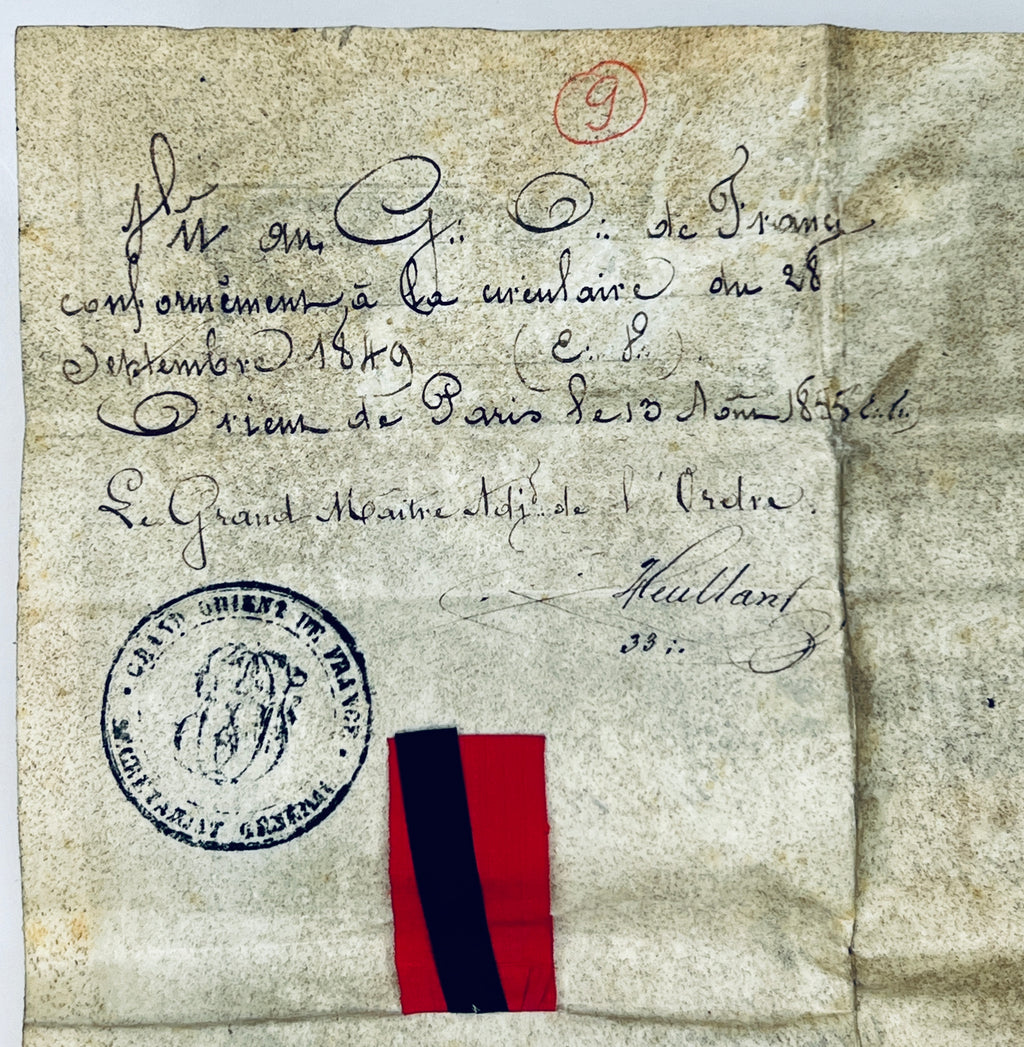 9
au G∴ O∴ de France
conformément à la circulaire du 28
Septembre 1849 (E. V.)
Orient de Paris le 13 Août 1855 E. V.
Le Grand Maître Adj.t de l'Ordre.
Heullant
33∴
GRAND ORIENT DE FRANCE
SECRETARIAT GÉNÉRAL